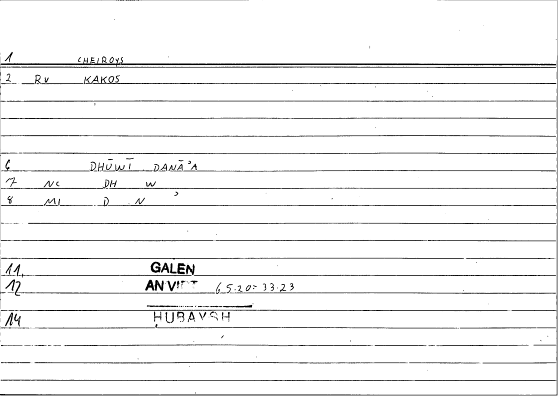 1 CHEIROYS
2 Rv KAKOS
6 DHŪWĪ DANĀʾA
7 NC DH W
8 MI D N ʾ
11. GALEN
12 AN VIRT 65.20 = 33.23
14 ḤUBAYSH